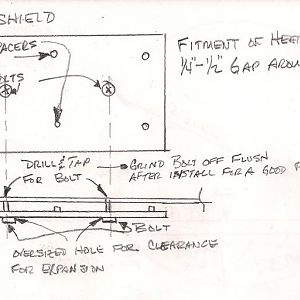 SHIELD
FITMENT OF HEET
1/4"-1/2" GAP AROU
ACERS
LTS
DRILL & TAP
FOR BOLT
GRIND BOLT OFF FLUSH
AFTER INSTALL FOR A GOOD F
BOLT
OVERSIZED HOLE FOR CLEARANCE
FOR EXPANSION